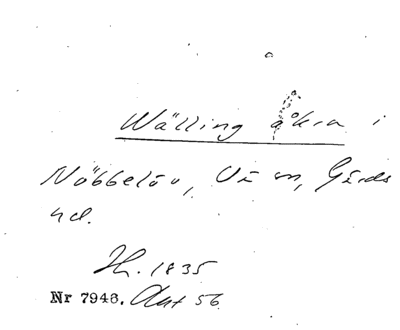 Wälling åkra i
Nöbbelöv, V:a m, Gärds
hd.
H. 1835
Nr 7946. Akt 56